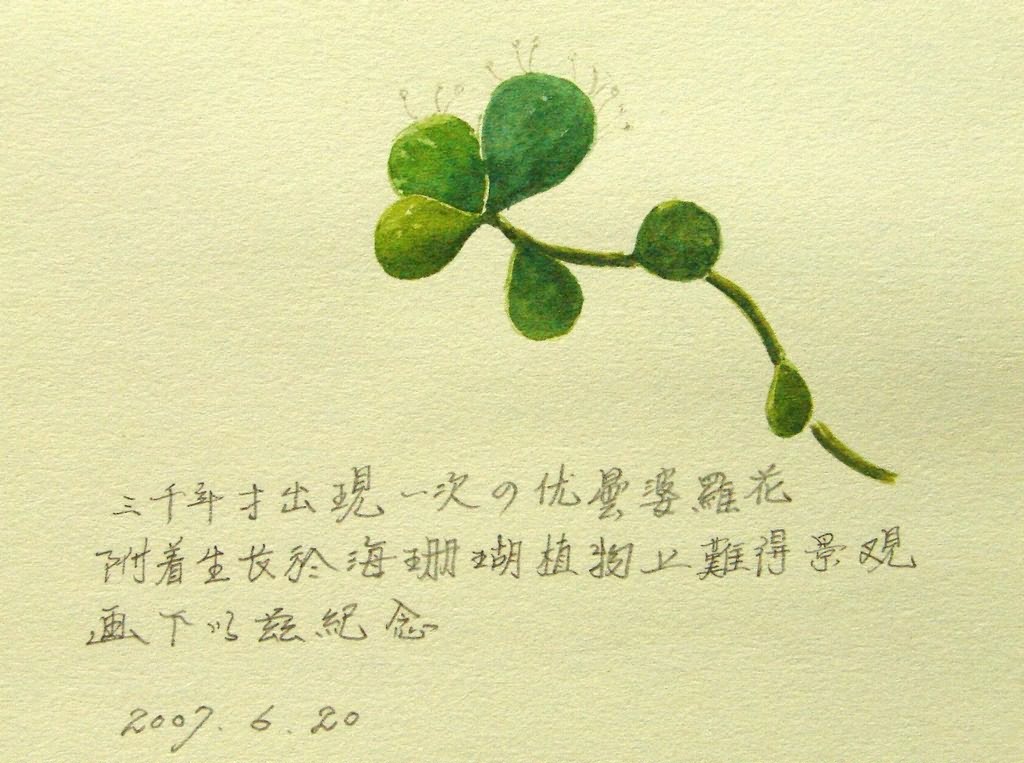 三千年才出現一次の优曇婆羅花
附着生长於海珊瑚植物上難得景观
画下以兹紀念
2007.6.20